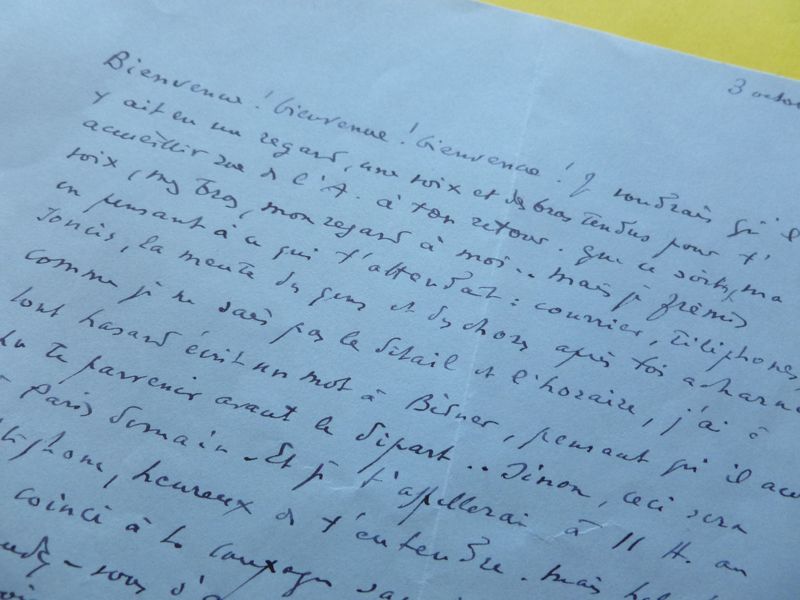 3 octo
Bienvenue ! bienvenue ! bienvenue ! Je voudrais qu'il
y ait eu un regard, une voix et des bras tendus pour t'
accueillir rue de l'A. à ton retour. Que ce soit ma
voix, mes bras, mon regard à moi.. mais je frémis
en pensant à ce qui t'attendait : courrier, téléphones,
soucis, la meute des gens et des choses après toi acharné
comme je ne sais pas le détail et l'horaire, j'ai à
tout hasard écrit un mot à Bidner, pensant qu'il
tu parvenir avant le départ .. Sinon, ceci sera
à Paris demain. Et je t'appellerai à 11 H. au
heureux de t'entendre. mais
coincé à la campagne
vous